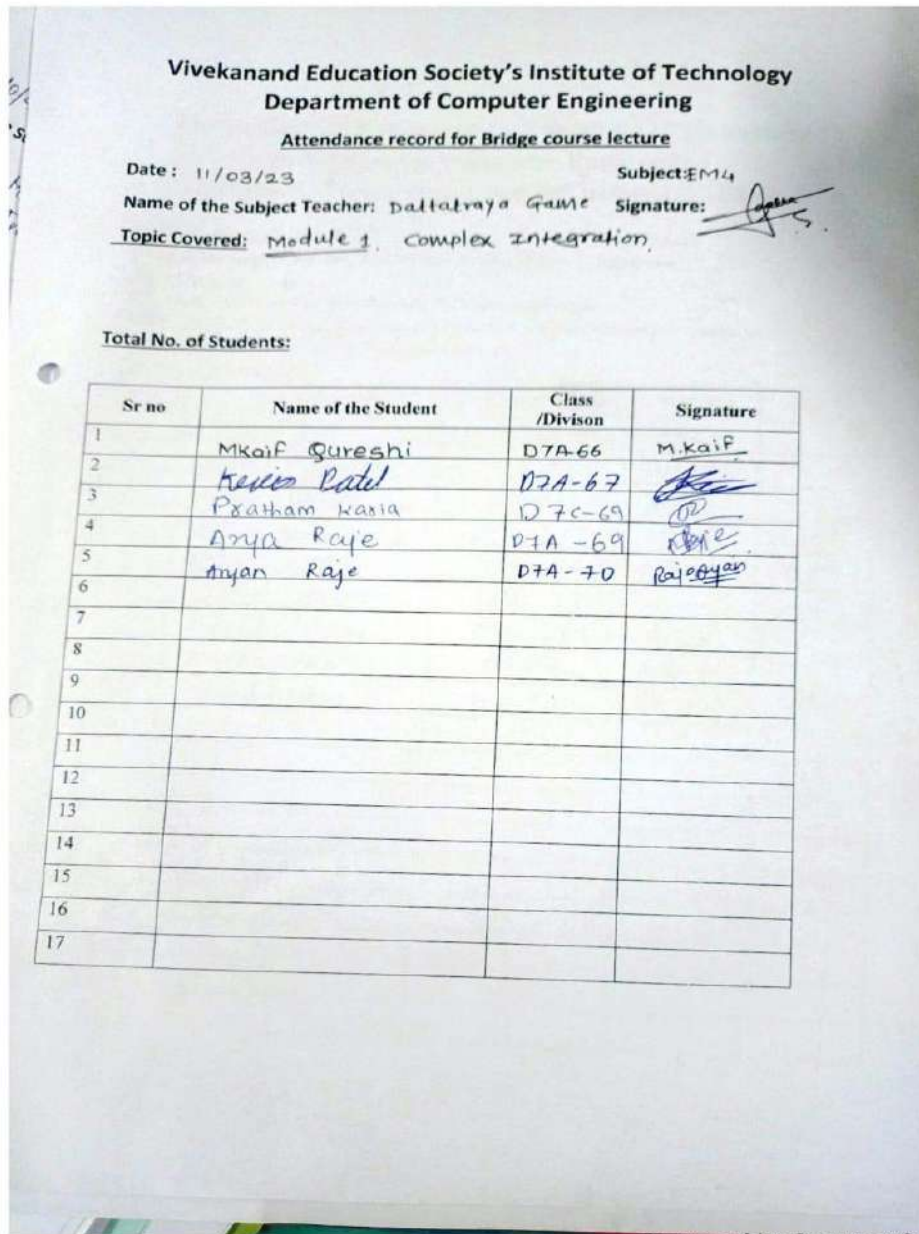 Vivekanand Education Society's Institute of Technology
Department of Computer Engineering
Attendance record for Bridge course lecture
Date : 11/03/23 Subject:EM4
Name of the Subject Teacher: Dattatraya Game Signature:
Topic Covered: Module 1. Complex Integration.
Total No. of Students:
Sr no Name of the Student Class /Divison Signature
1 MKaif Qureshi D7A-66 M.Kaif
2 Kevin Patel D7A-67
3 Pratham Karia D7C-69
4 Arya Raje D7A-69
5 Aryan Raje D7A-70
6
7
8
9
10
11
12
13
14
15
16
17